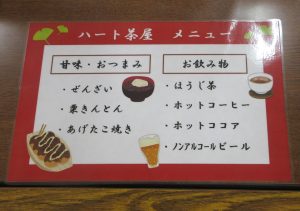 ハート茶屋　メニュー
甘味・おつまみ
・ぜんざい
・栗きんとん
・あげたこ焼き
お飲み物
・ほうじ茶
・ホットコーヒー
・ホットココア
・ノンアルコールビール